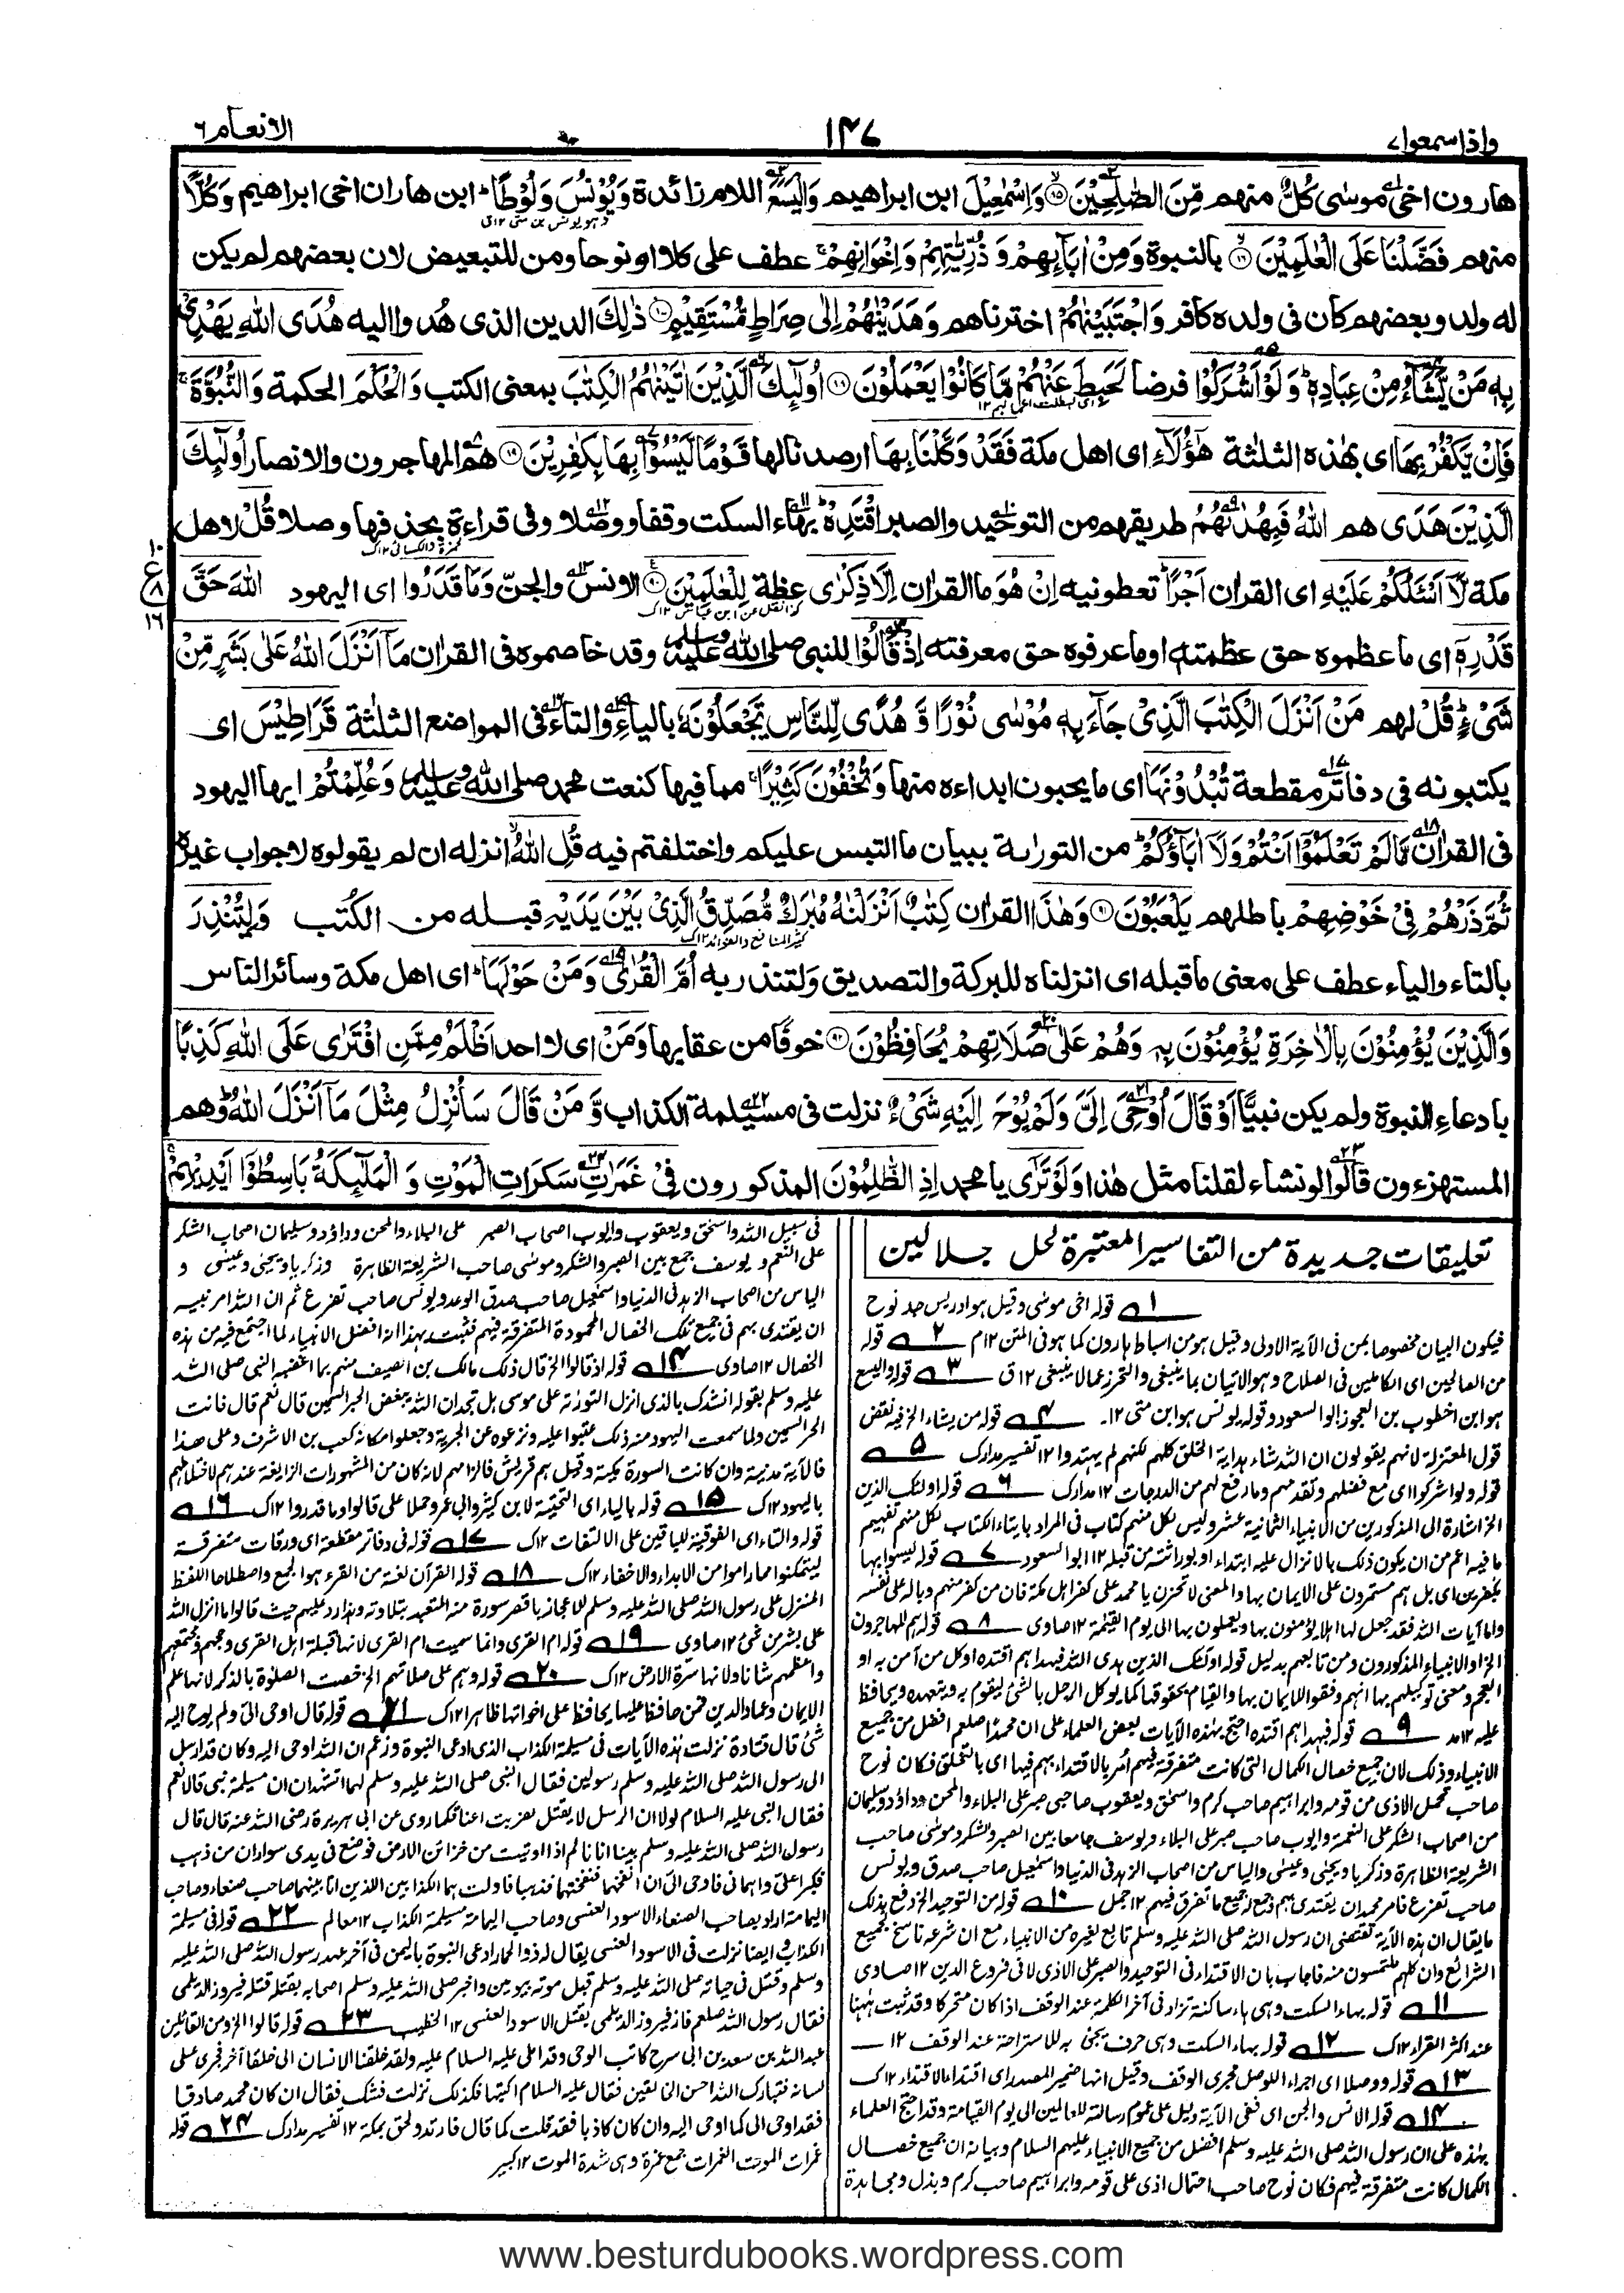 واذاسمعوا۷
۱۴۷
الانعام۶
هارون اخی موسٰی كُلٌّ منهم مِّنَ الصّٰلِحِيْنَ ۝ وَاِسْمٰعِيْلَ ابن ابراهيم وَالْيَسَعَ اللام زائدة وَيُوْنُسَ وَلُوْطًا ؕ ابن هاران اخی ابراهيم وَكُلًّا
منهم فَضَّلْنَا عَلَى الْعٰلَمِيْنَ ۝ بالنبوة وَمِنْ اٰبَآئِهِمْ وَ ذُرِّيّٰتِهِمْ وَ اِخْوَانِهِمْ ۚ عطف على كلا او نوحا ومن للتبعيض لان بعضهم لم يكن
له ولد وبعضهم كان فی ولده كافر وَاجْتَبَيْنٰهُمْ اخترناهم وَهَدَيْنٰهُمْ اِلٰى صِرَاطٍ مُّسْتَقِيْمٍ ۝ ذٰلِكَ الدين الذی هُدوا اليه هُدَى اللّٰهِ يَهْدِیْ
بِهٖ مَنْ يَّشَآءُ مِنْ عِبَادِهٖ ؕ وَلَوْ اَشْرَكُوْا فرضا لَحَبِطَ عَنْهُمْ مَّا كَانُوْا يَعْمَلُوْنَ ۝ اُولٰٓئِكَ الَّذِيْنَ اٰتَيْنٰهُمُ الْكِتٰبَ بمعنى الكتب وَالْحُكْمَ الحكمة وَالنُّبُوَّةَ ۚ
فَاِنْ يَّكْفُرْ بِهَا ای بهٰذه الثلٰثة هٰٓؤُلَآءِ ای اهل مكة فَقَدْ وَكَّلْنَا بِهَا ارصدنا لها قَوْمًا لَّيْسُوْا بِهَا بِكٰفِرِيْنَ ۝ هم المهاجرون والانصار اُولٰٓئِكَ
الَّذِيْنَ هَدَى هم اللّٰهُ فَبِهُدٰىهُمُ طريقهم من التوحيد والصبر اقْتَدِهْ ؕ بهاء السكت وقفا ووصلا وفی قراءة بحذفها وصلا قُلْ لاهل
مكة لَّآ اَسْئَلُكُمْ عَلَيْهِ ای القران اَجْرًا ؕ تعطونيه اِنْ هُوَ ما القران اِلَّا ذِكْرٰى عظة لِلْعٰلَمِيْنَ ۝ الانس والجن وَمَا قَدَرُوا ای اليهود اللّٰهَ حَقَّ
قَدْرِهٖٓ ای ما عظموه حق عظمته او ما عرفوه حق معرفته اِذْ قَالُوْا للنبی صلی اللہ علیہ وسلم وقد خاصموه فی القران مَآ اَنْزَلَ اللّٰهُ عَلٰى بَشَرٍ مِّنْ
شَیْءٍ ؕ قُلْ لهم مَنْ اَنْزَلَ الْكِتٰبَ الَّذِیْ جَآءَ بِهٖ مُوْسٰى نُوْرًا وَّ هُدًى لِّلنَّاسِ تَجْعَلُوْنَهٗ بالياء والتاء فی المواضع الثلثة قَرَاطِيْسَ ای
يكتبونه فی دفاتر مقطعة تُبْدُوْنَهَا ای ما يحبون ابداءه منها وَتُخْفُوْنَ كَثِيْرًا ۚ مما فيها كنعت محمد صلی اللہ علیہ وسلم وَعُلِّمْتُمْ ايها اليهود
فی القران مَّا لَمْ تَعْلَمُوْٓا اَنْتُمْ وَلَآ اٰبَآؤُكُمْ ؕ من التورٰىة ببيان ما التبس عليكم واختلفتم فيه قُلِ اللّٰهُ ۙ انزله ان لم يقولوه لا جواب غيره
ثُمَّ ذَرْهُمْ فِیْ خَوْضِهِمْ باطلهم يَلْعَبُوْنَ ۝ وَهٰذَا القران كِتٰبٌ اَنْزَلْنٰهُ مُبٰرَكٌ مُّصَدِّقُ الَّذِیْ بَيْنَ يَدَيْهِ قبله من الكُتب وَلِتُنْذِرَ
بالتاء والياء عطف على معنى ما قبله ای انزلناه للبركة والتصديق ولتنذر به اُمَّ الْقُرٰى وَمَنْ حَوْلَهَا ؕ ای اهل مكة وسائر الناس
وَالَّذِيْنَ يُؤْمِنُوْنَ بِالْاٰخِرَةِ يُؤْمِنُوْنَ بِهٖ وَهُمْ عَلٰى صَلَاتِهِمْ يُحَافِظُوْنَ ۝ خوفًا من عقابها وَمَنْ ای لا احد اَظْلَمُ مِمَّنِ افْتَرٰى عَلَى اللّٰهِ كَذِبًا
بادعاءِ النبوة ولم يكن نبيًّا اَوْ قَالَ اُوْحِیَ اِلَیَّ وَلَمْ يُوْحَ اِلَيْهِ شَیْءٌ نزلت فی مسيلمة الكذاب وَّ مَنْ قَالَ سَاُنْزِلُ مِثْلَ مَآ اَنْزَلَ اللّٰهُ ؕ وهم
المستهزءون قالوا لو نشاء لقلنا مثل هٰذا وَلَوْ تَرٰٓى يا محمد اِذِ الظّٰلِمُوْنَ المذكورون فِیْ غَمَرٰتِ سَكَرَاتِ الْمَوْتِ وَ الْمَلٰٓئِكَةُ بَاسِطُوْٓا اَيْدِيْهِمْ ۚ
تعليقات جديدة من التفاسير المعتبرة لحل جلالين
۱ قوله اخی موسٰی وقيل هو ادريس جد نوح
فيكون البيان مخصوصا بمن فی الآية الاولی وقيل هو من اسباط هارون كما هو فی المتن ۱۲م ۲ قوله
من الصالحين ای الكاملين فی الصلاح وهو الاتيان بما ينبغی والتحرز عما لا ينبغی ۱۲ق ۳ قوله واليسع
هو ابن اخطوب بن العجوز ابو السعود وقوله يونس هو ابن متی ۱۲۔ ۴ قوله من يشاء الخ فيه نقض
قول المعتزلة لانهم يقولون ان الله شاء هداية الخلق كلهم لكنهم لم يهتدوا ۱۲ تفسير مدارك ۵
قوله ولو اشركوا ای مع فضلهم وتقدمهم وما رفع لهم من الدرجات ۱۲ مدارك ۶ قوله اولئك الذين
الخ اشارة الى المذكورين من الانبياء الثمانية عشر وليس لكل منهم كتاب فی المراد بايتاء الكتاب لكل منهم تفهيم
ما فيه اعم من ان يكون ذلك بالانزال عليه ابتداء او بوراثته من قبله ۱۲ ابو السعود ۷ قوله ليسوا بها
بكفرين ای بل هم مستمرون على الايمان بها والمعنى لا تحزن يا محمد على كفر اهل مكة فان من كفر منهم وباله على نفسه
واما آيات الله فقد جعل لها اهلا يؤمنون بها ويعملون بها الى يوم القيمة ۱۲ صاوی ۸ قوله هم المهاجرون
الخ او الانبياء المذكورون ومن تابعهم بدليل قوله اولئك الذين هدى الله فبهداهم اقتده او كل من آمن به او
العجم ومعنى توكيلهم بها انهم وفقوا للايمان بها والقيام بحقوقها كما يوكل الرجل بالشئ ليقوم به ويتعهده ويحافظ
عليه ۱۲مد ۹ قوله فبهداهم اقتده احتج بهذه الآيات بعض العلماء على ان محمدًا صلعم افضل من جميع
الانبياء وذلك لان جميع خصال الكمال التی كانت متفرقة فيهم امر بالاقتداء بهم فيها ای بالتخلق فكان نوح
صاحب تحمل الاذی من قومه وابراهيم صاحب كرم واسحٰق ويعقوب صاحبی صبر على البلاء والمحن وداؤد وسليمان
من اصحاب الشكر على النعمة وايوب صاحب صبر على البلاء ويوسف جامعا بين الصبر والشكر وموسٰی صاحب
الشريعة الظاهرة وذكريا ويحيٰی وعيسٰی والياس من اصحاب الزهد فی الدنيا واسمٰعيل صاحب صدق ويونس
صاحب تضرع فامر محمد ان يقتدی بهم وجمع له جميع ما تفرق فيهم ۱۲ جمل ۱۰ قوله من التوحيد الخ دفع بذلك
ما يقال ان هذه الآية تقتضی ان رسول الله صلى الله عليه وسلم تابع لغيره من الانبياء مع ان شرعه ناسخ لجميع
الشرائع وان كلهم ملتمسون منه فاجاب بان الاقتداء فی التوحيد والصبر على الاذی لا فی فروع الدين ۱۲ صاوی
۱۱ قوله بهاء السكت وهی هاء ساكنة تزاد فی آخر الكلمة عند الوقف اذا كان متحركا وقد ثبت ههنا
عند اكثر القراء ۱۲ك ۱۲ قوله بهاء السكت وهی حرف يجئ به للاستراحة عند الوقف ۱۲
۱۳ قوله ووصلا ای اجراء للوصل مجری الوقف وقيل انها ضمير المصدر ای اقتد الاقتداء ۱۲ك
۱۴ قوله الانس والجن ای ففی الآية دليل على عموم رسالته للعالمين الى يوم القيامة وقد احتج العلماء
بهذه على ان رسول الله صلى الله عليه وسلم افضل من جميع الانبياء عليهم السلام وبيانه ان جميع خصال
الكمال كانت متفرقة فيهم فكان نوح صاحب احتمال اذی على قومه وابراهيم صاحب كرم وبذل ومجاهدة
فی سبيل الله واسحٰق ويعقوب وايوب اصحاب الصبر على البلاء والمحن وداؤد وسليمان اصحاب الشكر
على النعم ويوسف جمع بين الصبر والشكر وموسٰی صاحب الشريعة الظاهرة وزكريا ويحيٰی وعيسٰی و
الياس من اصحاب الزهد فی الدنيا واسمٰعيل صاحب صدق الوعد ويونس صاحب تضرع ثم ان الله امر نبيه
ان يقتدی بهم فی جميع تلك الخصال المحمودة المتفرقة فيهم فثبت بهذا انه افضل الانبياء لما اجتمع فيه من هذه
الخصال ۱۲ صاوی ۱۴ قوله اذ قالوا الخ قال ذلك مالك بن الصيف منهم بما اغضبه النبی صلى الله
عليه وسلم بقوله انشدك بالذی انزل التورٰىة على موسى هل تجد ان الله يبغض الحبر السمين قال نعم قال فانت
الحبر السمين ولما سمعت اليهود منه ذلك عتبوا عليه ونزعوه عن الحبرية وجعلوا مكانه كعب بن الاشرف وعلى هذا
فالآية مدنية وان كانت السورة مكية وقيل هم قريش فالزامهم لانه كان من المشهورات الزايغة عندهم لاختلاطهم
باليهود ۱۲ك ۱۵ قوله بالياء ای التحتية لابن كثير وابی عمرو حملا على قالوا وما قدروا ۱۲ك ۱۶
قوله والتاء ای الفوقية للباقين على الالتفات ۱۲ك ۱۷ قوله فی دفاتر مقطعة ای ورقات متفرقة
ليتمكنوا مما راموا من الابداء والاخفاء ۱۲ك ۱۸ قوله القرآن لغة من القرء هو الجمع واصطلاحا اللفظ
المنزل على رسول الله صلى الله عليه وسلم للاعجاز باقصر سورة منه المتعبد بتلاوته وهذا رد عليهم حيث قالوا ما انزل الله
على بشر من شئ ۱۲ صاوی ۱۹ قوله ام القری وانما سميت ام القری لانها قبلة اهل القری وحجهم ومجتمعهم
واعظمهم شانا ولانها سرة الارض ۱۲ك ۲۰ قوله وهم على صلاتهم الخ خصت الصلٰوة بالذكر لانها علم
الايمان وعماد الدين فمن حافظ عليها يحافظ على اخواتها ظاهرا ۱۲ك ۲۱ قوله قال اوحی الیّ ولم يوح اليه
شئ قال قتادة نزلت هٰذه الآيات فی مسيلمة الكذاب الذی ادعى النبوة وزعم ان الله اوحی اليه وكان قد ارسل
الى رسول الله صلى الله عليه وسلم رسولين فقال النبی صلى الله عليه وسلم لهما اتشهدان ان مسيلمة نبی قالا نعم
فقال النبی عليه السلام لولا ان الرسل لا يقتل لضربت اعناقكما روی عن ابی هريرة رضی الله عنه قال قال
رسول الله صلى الله عليه وسلم بينا انا نائم اذا اوتيت من خزائن الارض فوضع فی يدی سواران من ذهب
فكبرا علیّ واهمانی فاوحی الیّ ان انفخهما فنفختهما فذهبا فاولت بهما الكذابين اللذين انا بينهما صاحب صنعاء وصاحب
اليمامة اراد بصاحب الصنعاء الاسود العنسی وصاحب اليمامة مسيلمة الكذاب ۱۲ معالم ۲۲ قوله فی مسيلمة
الكذاب وايضا نزلت فی الاسود العنسی يقال له ذو الحمار ادعى النبوة باليمن فی آخر عهد رسول الله صلى الله عليه
وسلم وقتل فی حياته صلى الله عليه وسلم قبل موته بيومين واخبر صلى الله عليه وسلم اصحابه بقتله قتله فيروز الديلمی
فقال رسول الله صلعم فاز فيروز الديلمی بقتل الاسود العنسی ۱۲ الخطيب ۲۳ قوله قالوا الخ ومن القائلين
عبد الله بن سعد بن ابی سرح كاتب الوحی وقد املی عليه السلام عليه ولقد خلقنا الانسان الى خلقا آخر فجری على
لسانه فتبارك الله احسن الخالقين فقال عليه السلام اكتبها فكذلك نزلت فشك فقال ان كان محمد صادقا
فقد اوحی الی كما اوحی اليه وان كان كاذبا فقد قلت كما قال فارتد ولحق بمكة ۱۲ تفسير مدارك ۲۴ قوله
غمرات الموت الغمرات جمع غمرة وهی شدة الموت ۱۲ كبير
www.besturdubooks.wordpress.com